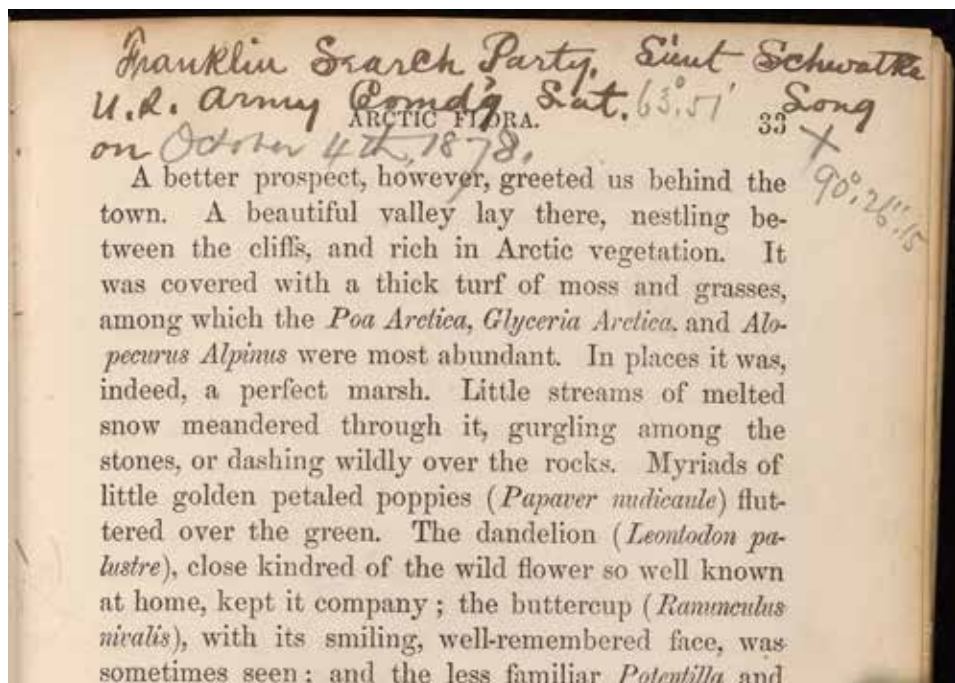 Franklin Search Party, Lieut Schwatka
U.S. Army Comd'g Lat. 63°.51' Long
ARCTIC FLORA. 33
on October 4th, 1878. X
90°.26".15
A better prospect, however, greeted us behind the
town. A beautiful valley lay there, nestling be-
tween the cliffs, and rich in Arctic vegetation. It
was covered with a thick turf of moss and grasses,
among which the Poa Arctica, Glyceria Arctica, and Alo-
pecurus Alpinus were most abundant. In places it was,
indeed, a perfect marsh. Little streams of melted
snow meandered through it, gurgling among the
stones, or dashing wildly over the rocks. Myriads of
little golden petaled poppies (Papaver nudicaule) flut-
tered over the green. The dandelion (Leontodon pa-
lustre), close kindred of the wild flower so well known
at home, kept it company; the buttercup (Ranunculus
nivalis), with its smiling, well-remembered face, was
sometimes seen; and the less familiar Potentilla and